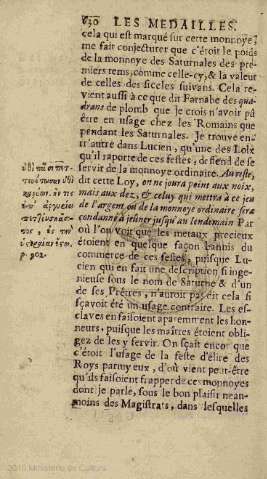 LES MEDAILLES.
cela qui est marqué sur cette monnoye?
me fait conjecturer que c'étoit le poids
de la monnoye des Saturnales des pre-
miers tems, comme celle-cy, & la valeur
de celles des siecles suivans. Cela re-
vient aussi à ce que dit Farnabe des qua-
drans de plomb que je crois n'avoir pû
être en usage chez les Romains que
pendant les Saturnales. Je trouve en-
tr'autre dans Lucien, qu'une des Loix
qu'il raporte de ces festes, deffend de se
servir de la monnoye ordinaire. Au reste,
dit cette Loy, on ne joura point aux noix,
mais aux dez, & celuy qui mettra à ce jeu
de l'argent ou de la monnoye ordinaire sera
condanné à jeûner jusqu'au lendemain. Par
où l'on voit que les metaux precieux
étoient en quelque façon bannis du
commerce de ces festes, puisque Lu-
cien qui en fait une description si inge-
nieuse sous le nom de Saturne & d'un
de ses Prêtres, n'auroit pas dit cela si
sçavoit été un usage contraire. Les es-
claves en faisoient aparemment les hon-
neurs, puisque les maîtres étoient obli-
gez de les y servir. On sçait encor que
c'étoit l'usage de la feste d'élire des
Roys parmy eux, d'où vient peut-être
qu'ils faisoient frapper de ces monnoyes
dont je parle, sous le bon plaisir nean-
moins des Magistrats, dans lesquelles
p. 902.
2010 Ministerio de Cultura